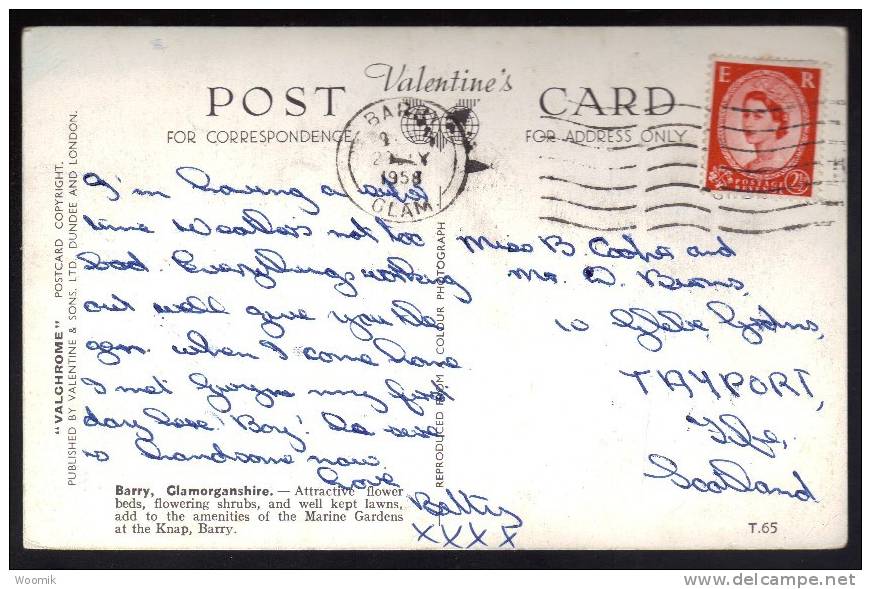 Valentine's
POST CARD
FOR CORRESPONDENCE
FOR ADDRESS ONLY
E R
POSTAGE
2½
BARRY
1958
GLAM.
"VALCHROME" POSTCARD COPYRIGHT.
PUBLISHED BY VALENTINE & SONS, LTD. DUNDEE AND LONDON.
REPRODUCED FROM A COLOUR PHOTOGRAPH
I'm having a
time Weather's not too
bad. Everythings working
out well give you the
gen. when I come home
I met my first
day here Boy!
so handsome now.
Love
Betty
XXXX
Miss B. and
Mr. D.
10 Glebe Gdns,
TAYPORT,
Fife,
Scotland
Barry, Glamorganshire. — Attractive flower
beds, flowering shrubs, and well kept lawns,
add to the amenities of the Marine Gardens
at the Knap, Barry.
T.65
Woomik
delcampe.net